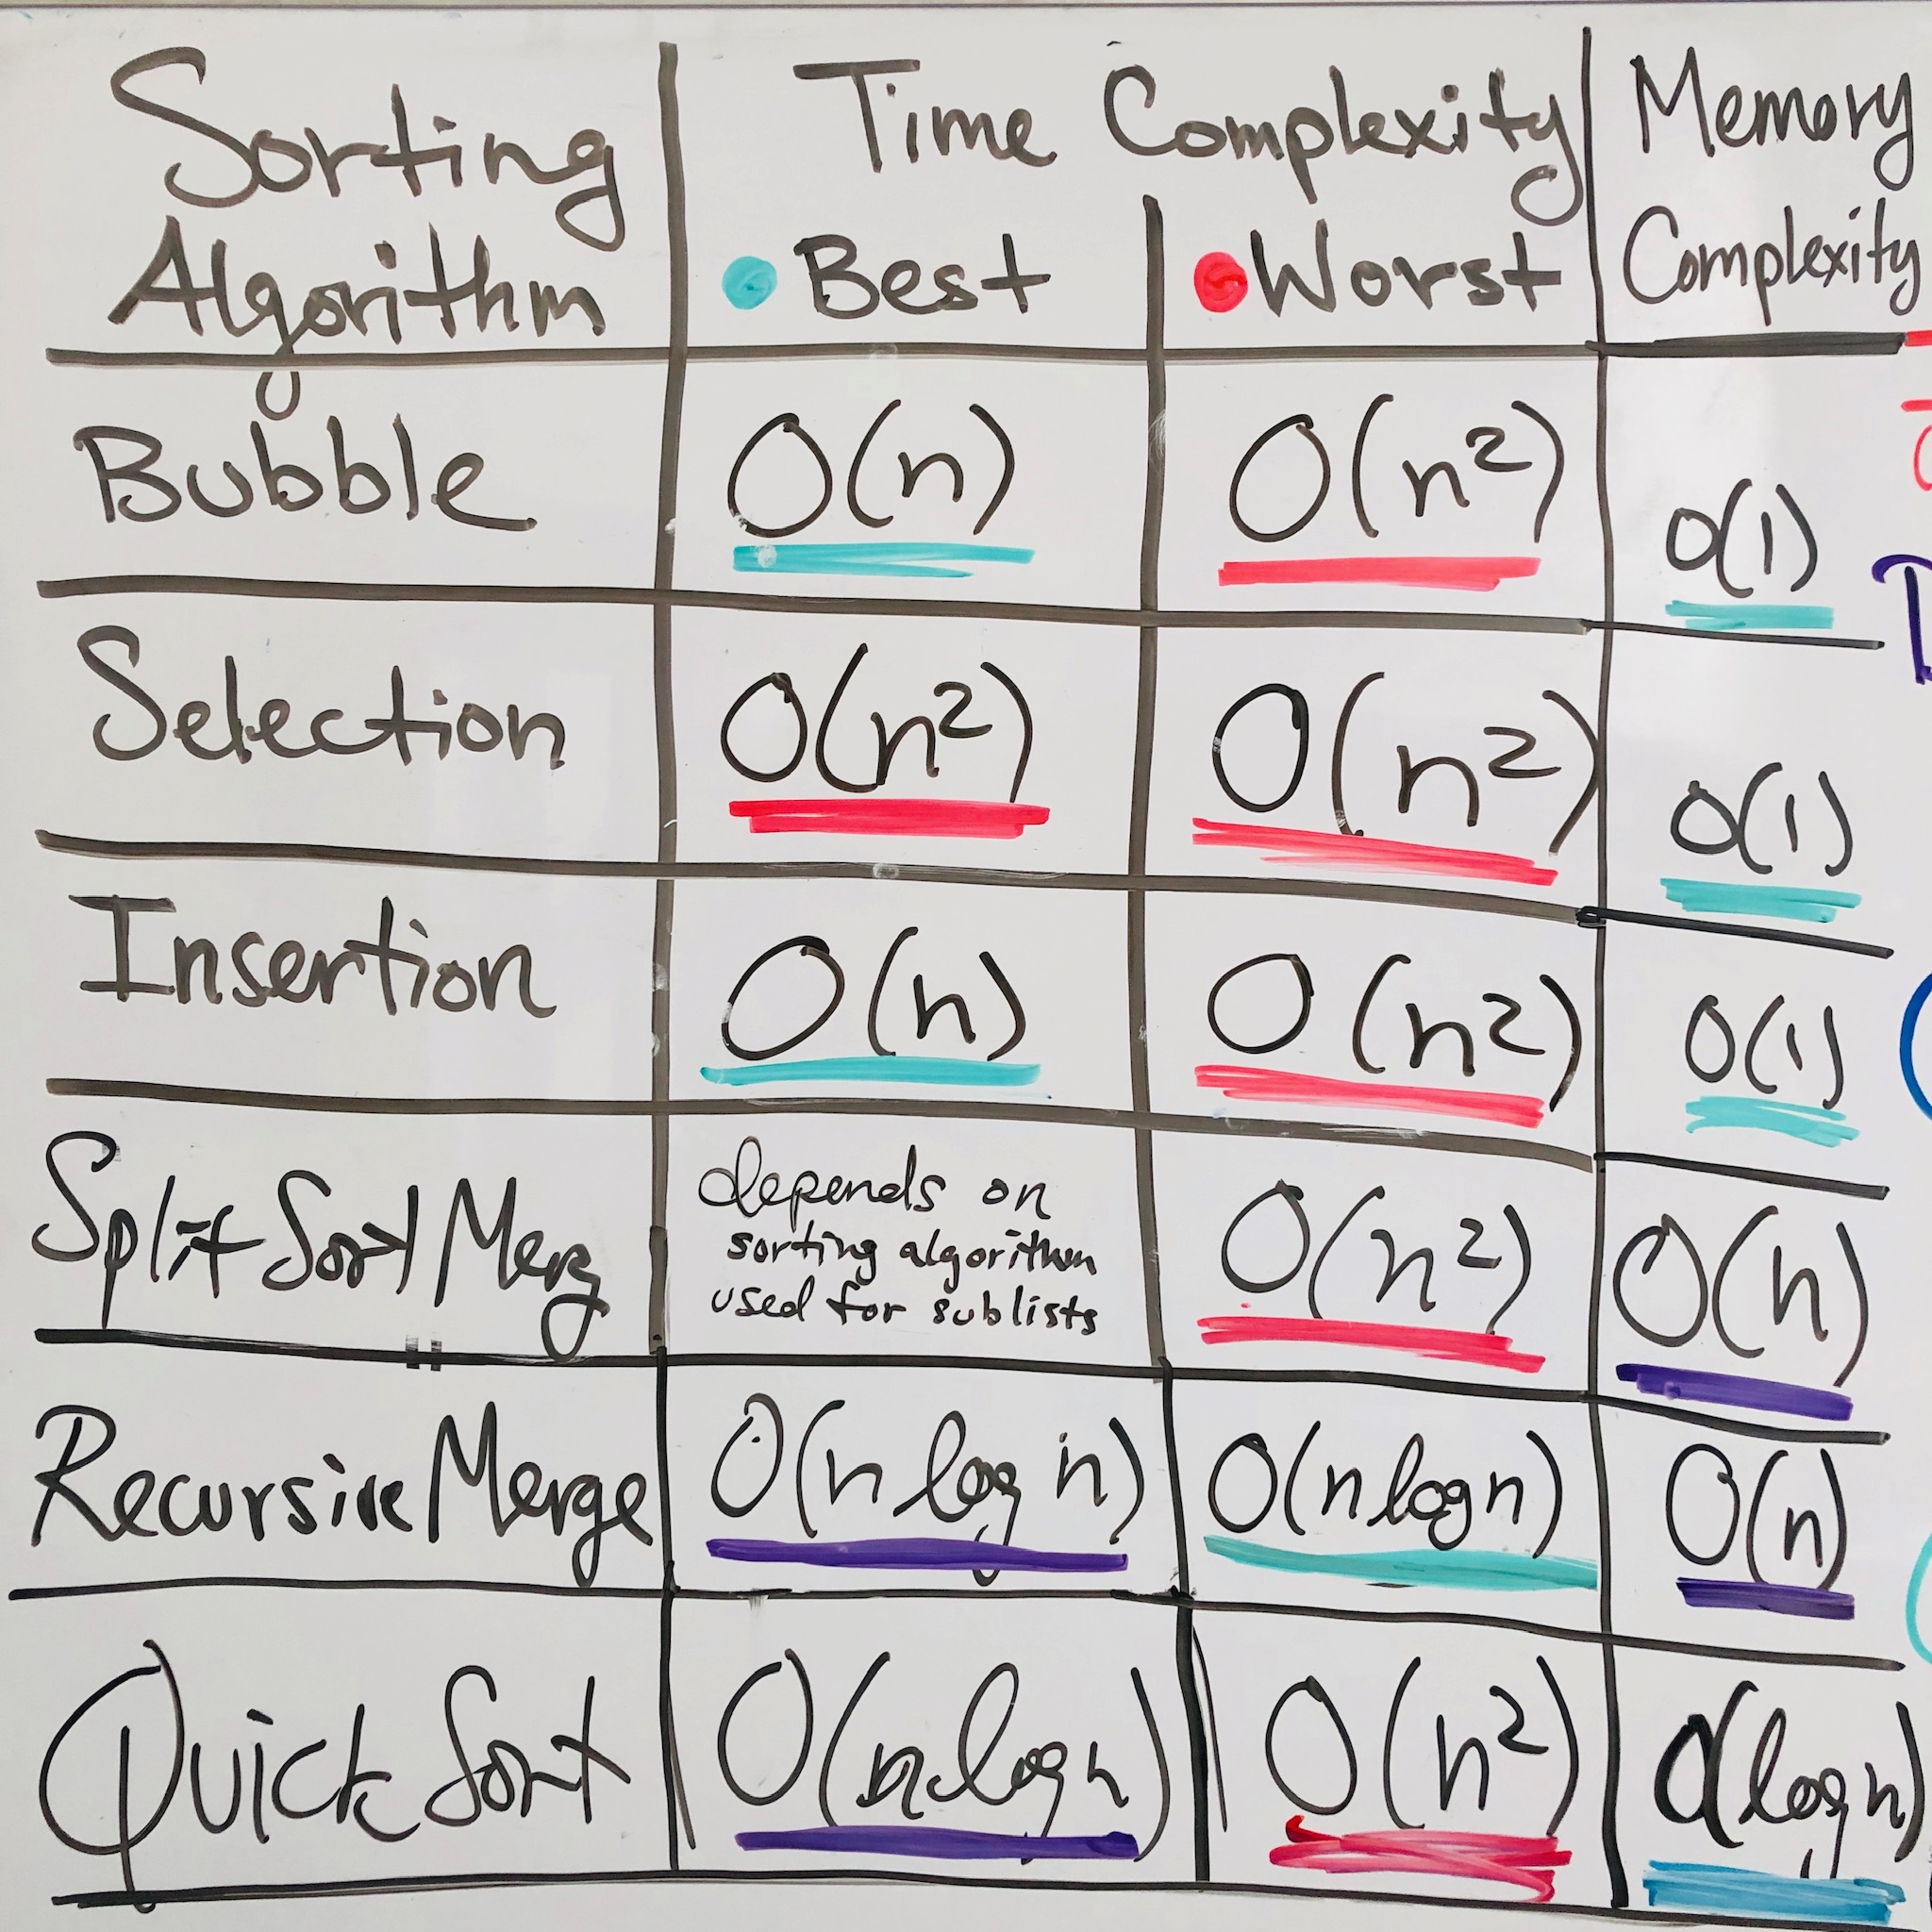 Sorting Algorithm
Time Complexity
Memory Complexity
Best
Worst
Bubble
O(n)
O(n²)
O(1)
Selection
O(n²)
O(n²)
O(1)
Insertion
O(n)
O(n²)
O(1)
Split Sort Merg
depends on
sorting algorithm
used for sublists
O(n²)
O(n)
Recursive Merge
O(n log n)
O(n log n)
O(n)
Quick Sort
O(n log n)
O(n²)
O(log n)